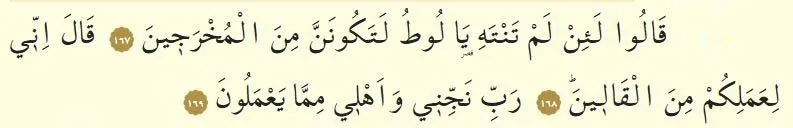 قَالُوا لَئِنْ لَمْ تَنْتَهِ يَا لُوطُ لَتَكُونَنَّ مِنَ الْمُخْرَجٖينَ ﴿١٦٧﴾ قَالَ اِنّٖي
لِعَمَلِكُمْ مِنَ الْقَالٖينَۜ ﴿١٦٨﴾ رَبِّ نَجِّنٖي وَاَهْلٖي مِمَّا يَعْمَلُونَ ﴿١٦٩﴾